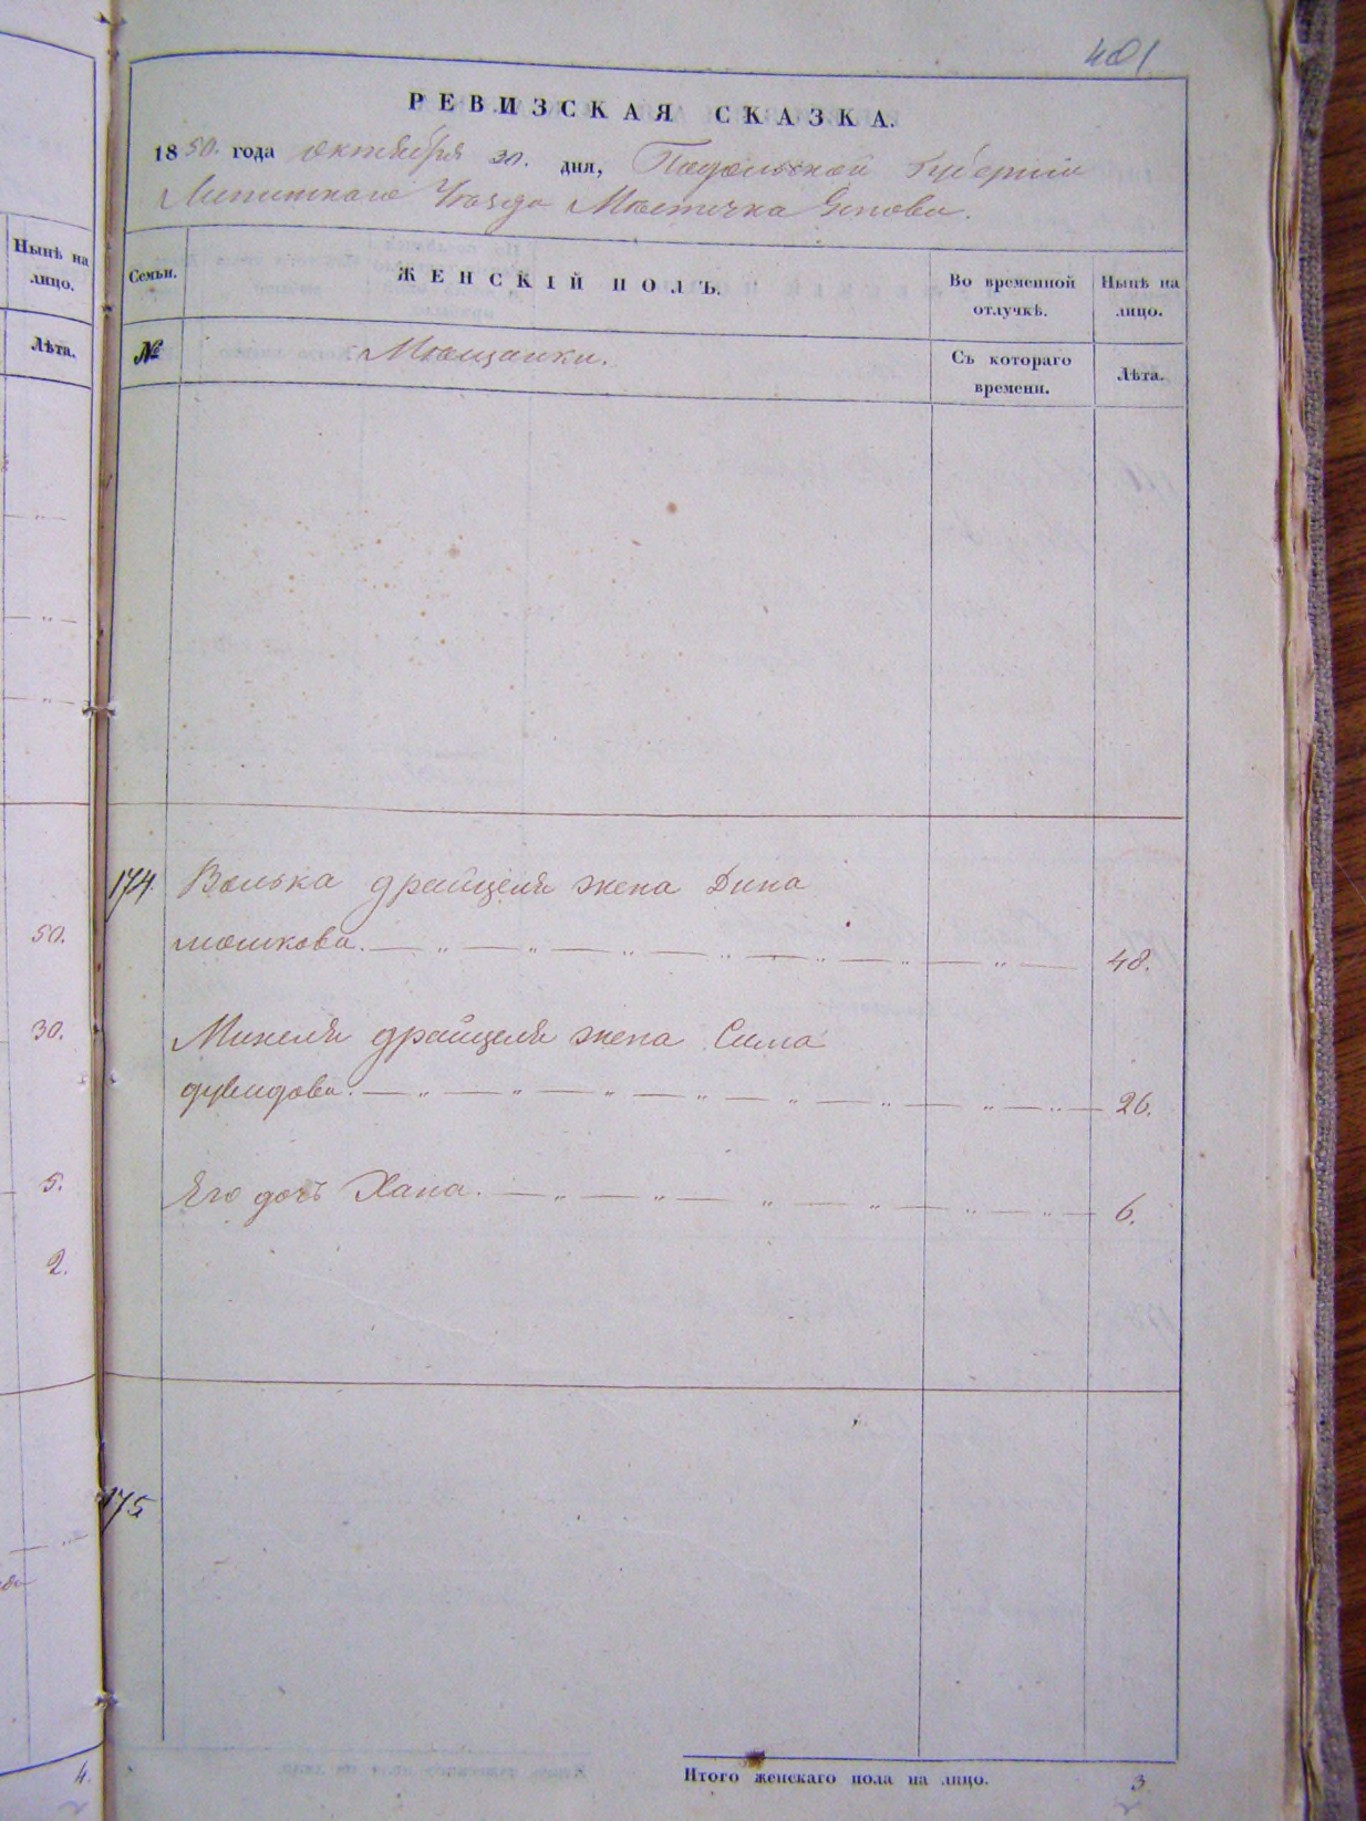 401
РЕВИЗСКАЯ СКАЗКА.
1850. года Октября 30. дня, Подольской Губернии
Уезда Местечка
Семьи.
ЖЕНСКІЙ ПОЛЪ.
Во временной отлучкѣ.
Нынѣ на лицо.
№
Мещанки.
Съ котораго времени.
Лѣта.
174. Волька драйцеля жена Дина
мошкова. — „ — „ — „ — „ — „ — „ — „ — 48.
Михеля драйцеля жена Сима
дувидова. — „ — „ — „ — „ — „ — „ — „ — „ — 26.
Его дочь Хана. — „ — „ — „ — „ — „ — „ — 6.
175
Итого женскаго пола на лицо. 3
Нынѣ на лицо.
Лѣта.
50.
30.
5.
2.
4.